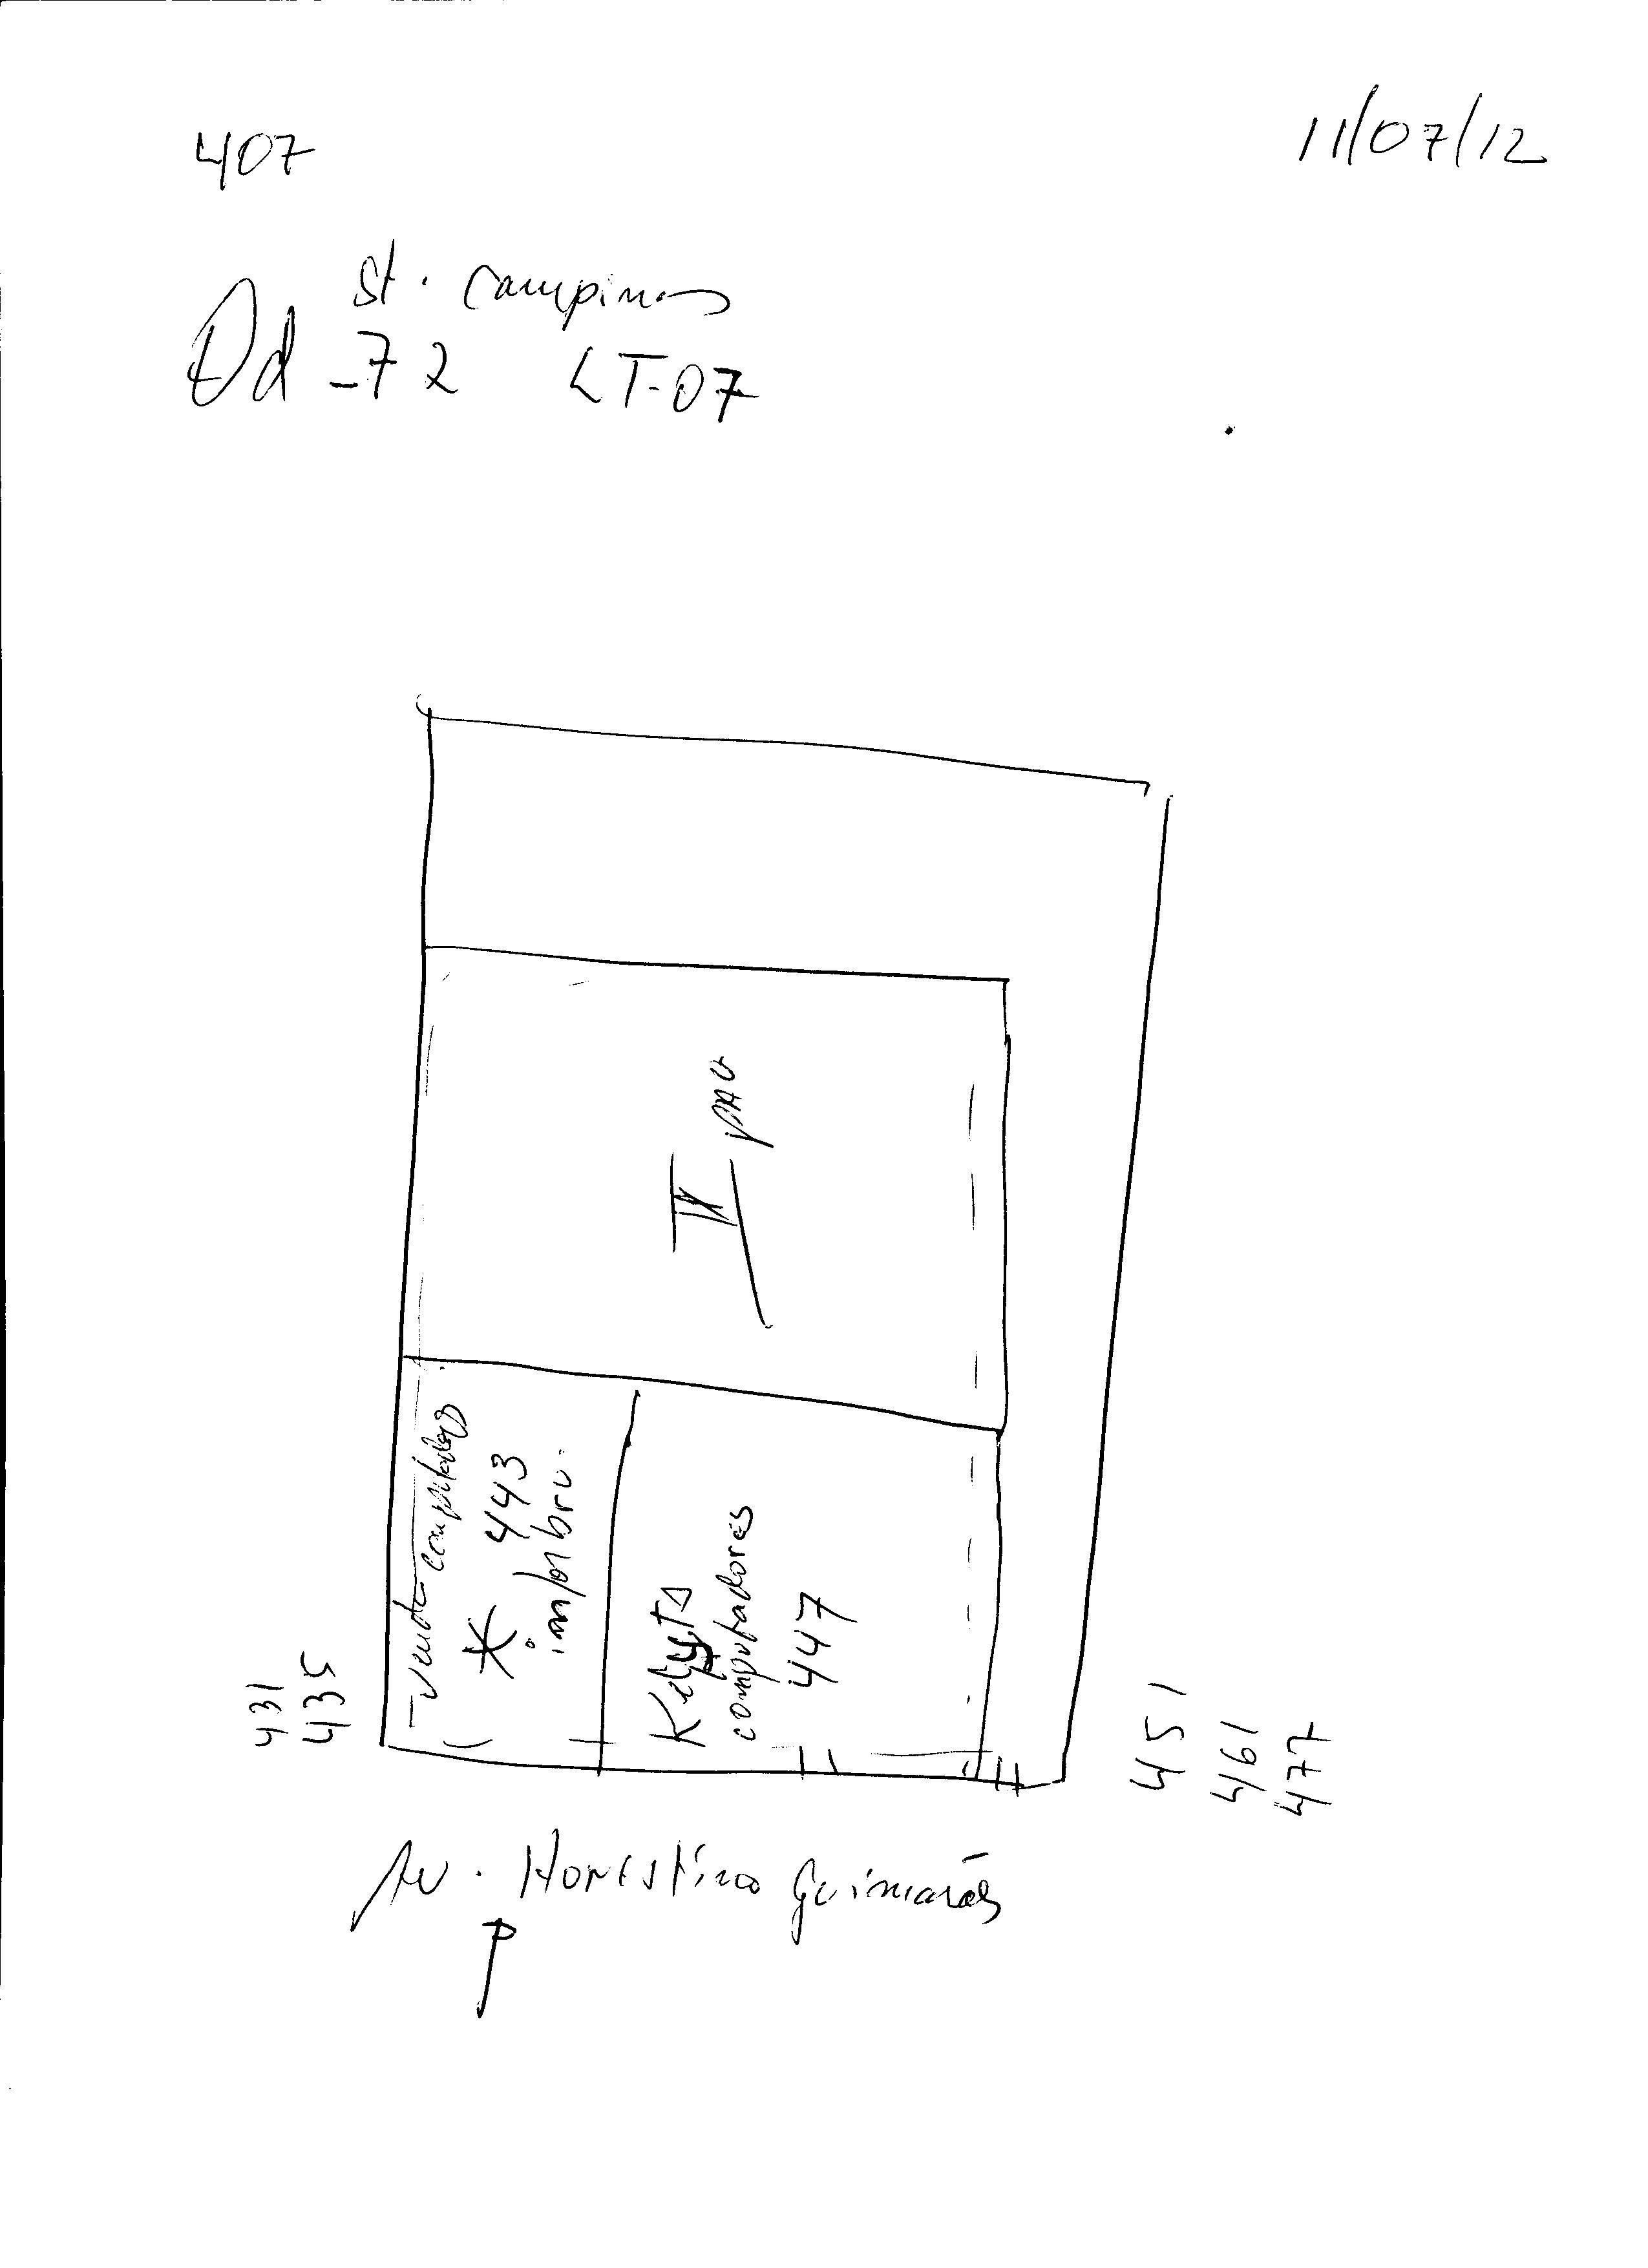 407
11/07/12
St. Campinas
Qd - 72 LT-07
II pav
- venda computadores
* 443
inforbru.
computadores
447
431
435
451
461
477
Av. Honestino Guimarães
P